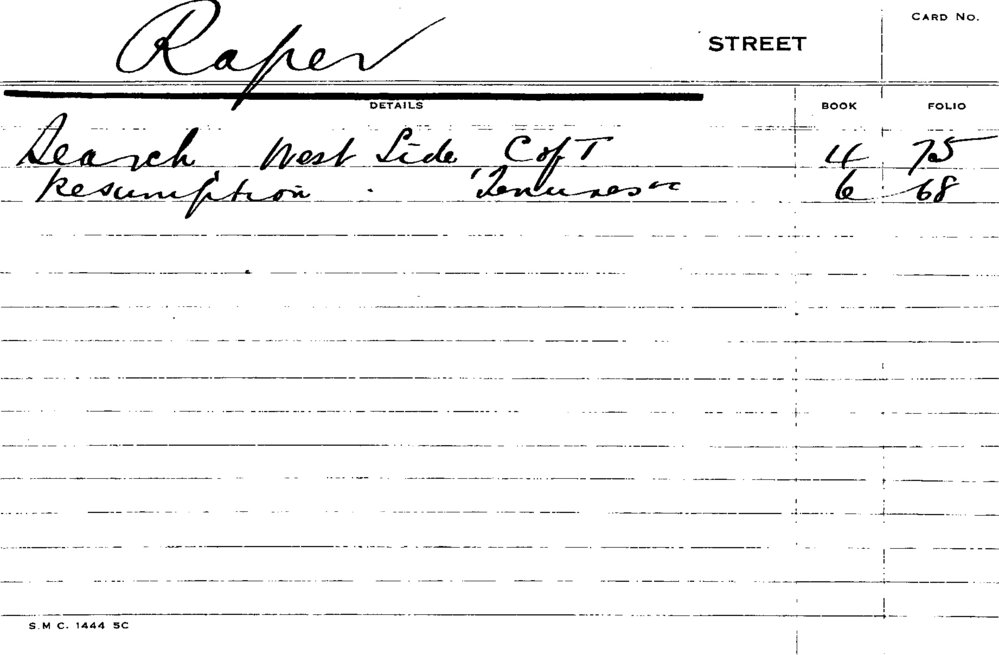 Raper STREET CARD NO.
DETAILS BOOK FOLIO
Search West Side C of T 4 75
Resumption . Tenures &c 6 68
S.M C. 1444 5C